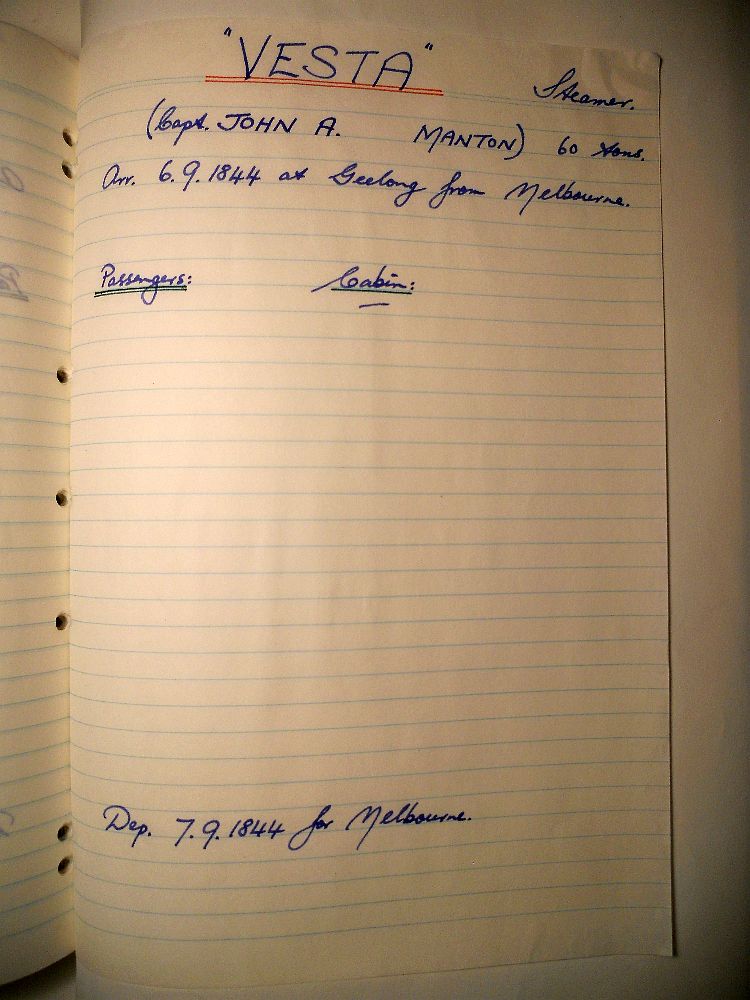 "VESTA"
Steamer.
(Capt. JOHN A. MANTON) 60 tons.
Arr. 6.9.1844 at Geelong from Melbourne.
Passengers: Cabin:
—
Dep. 7.9.1844 for Melbourne.